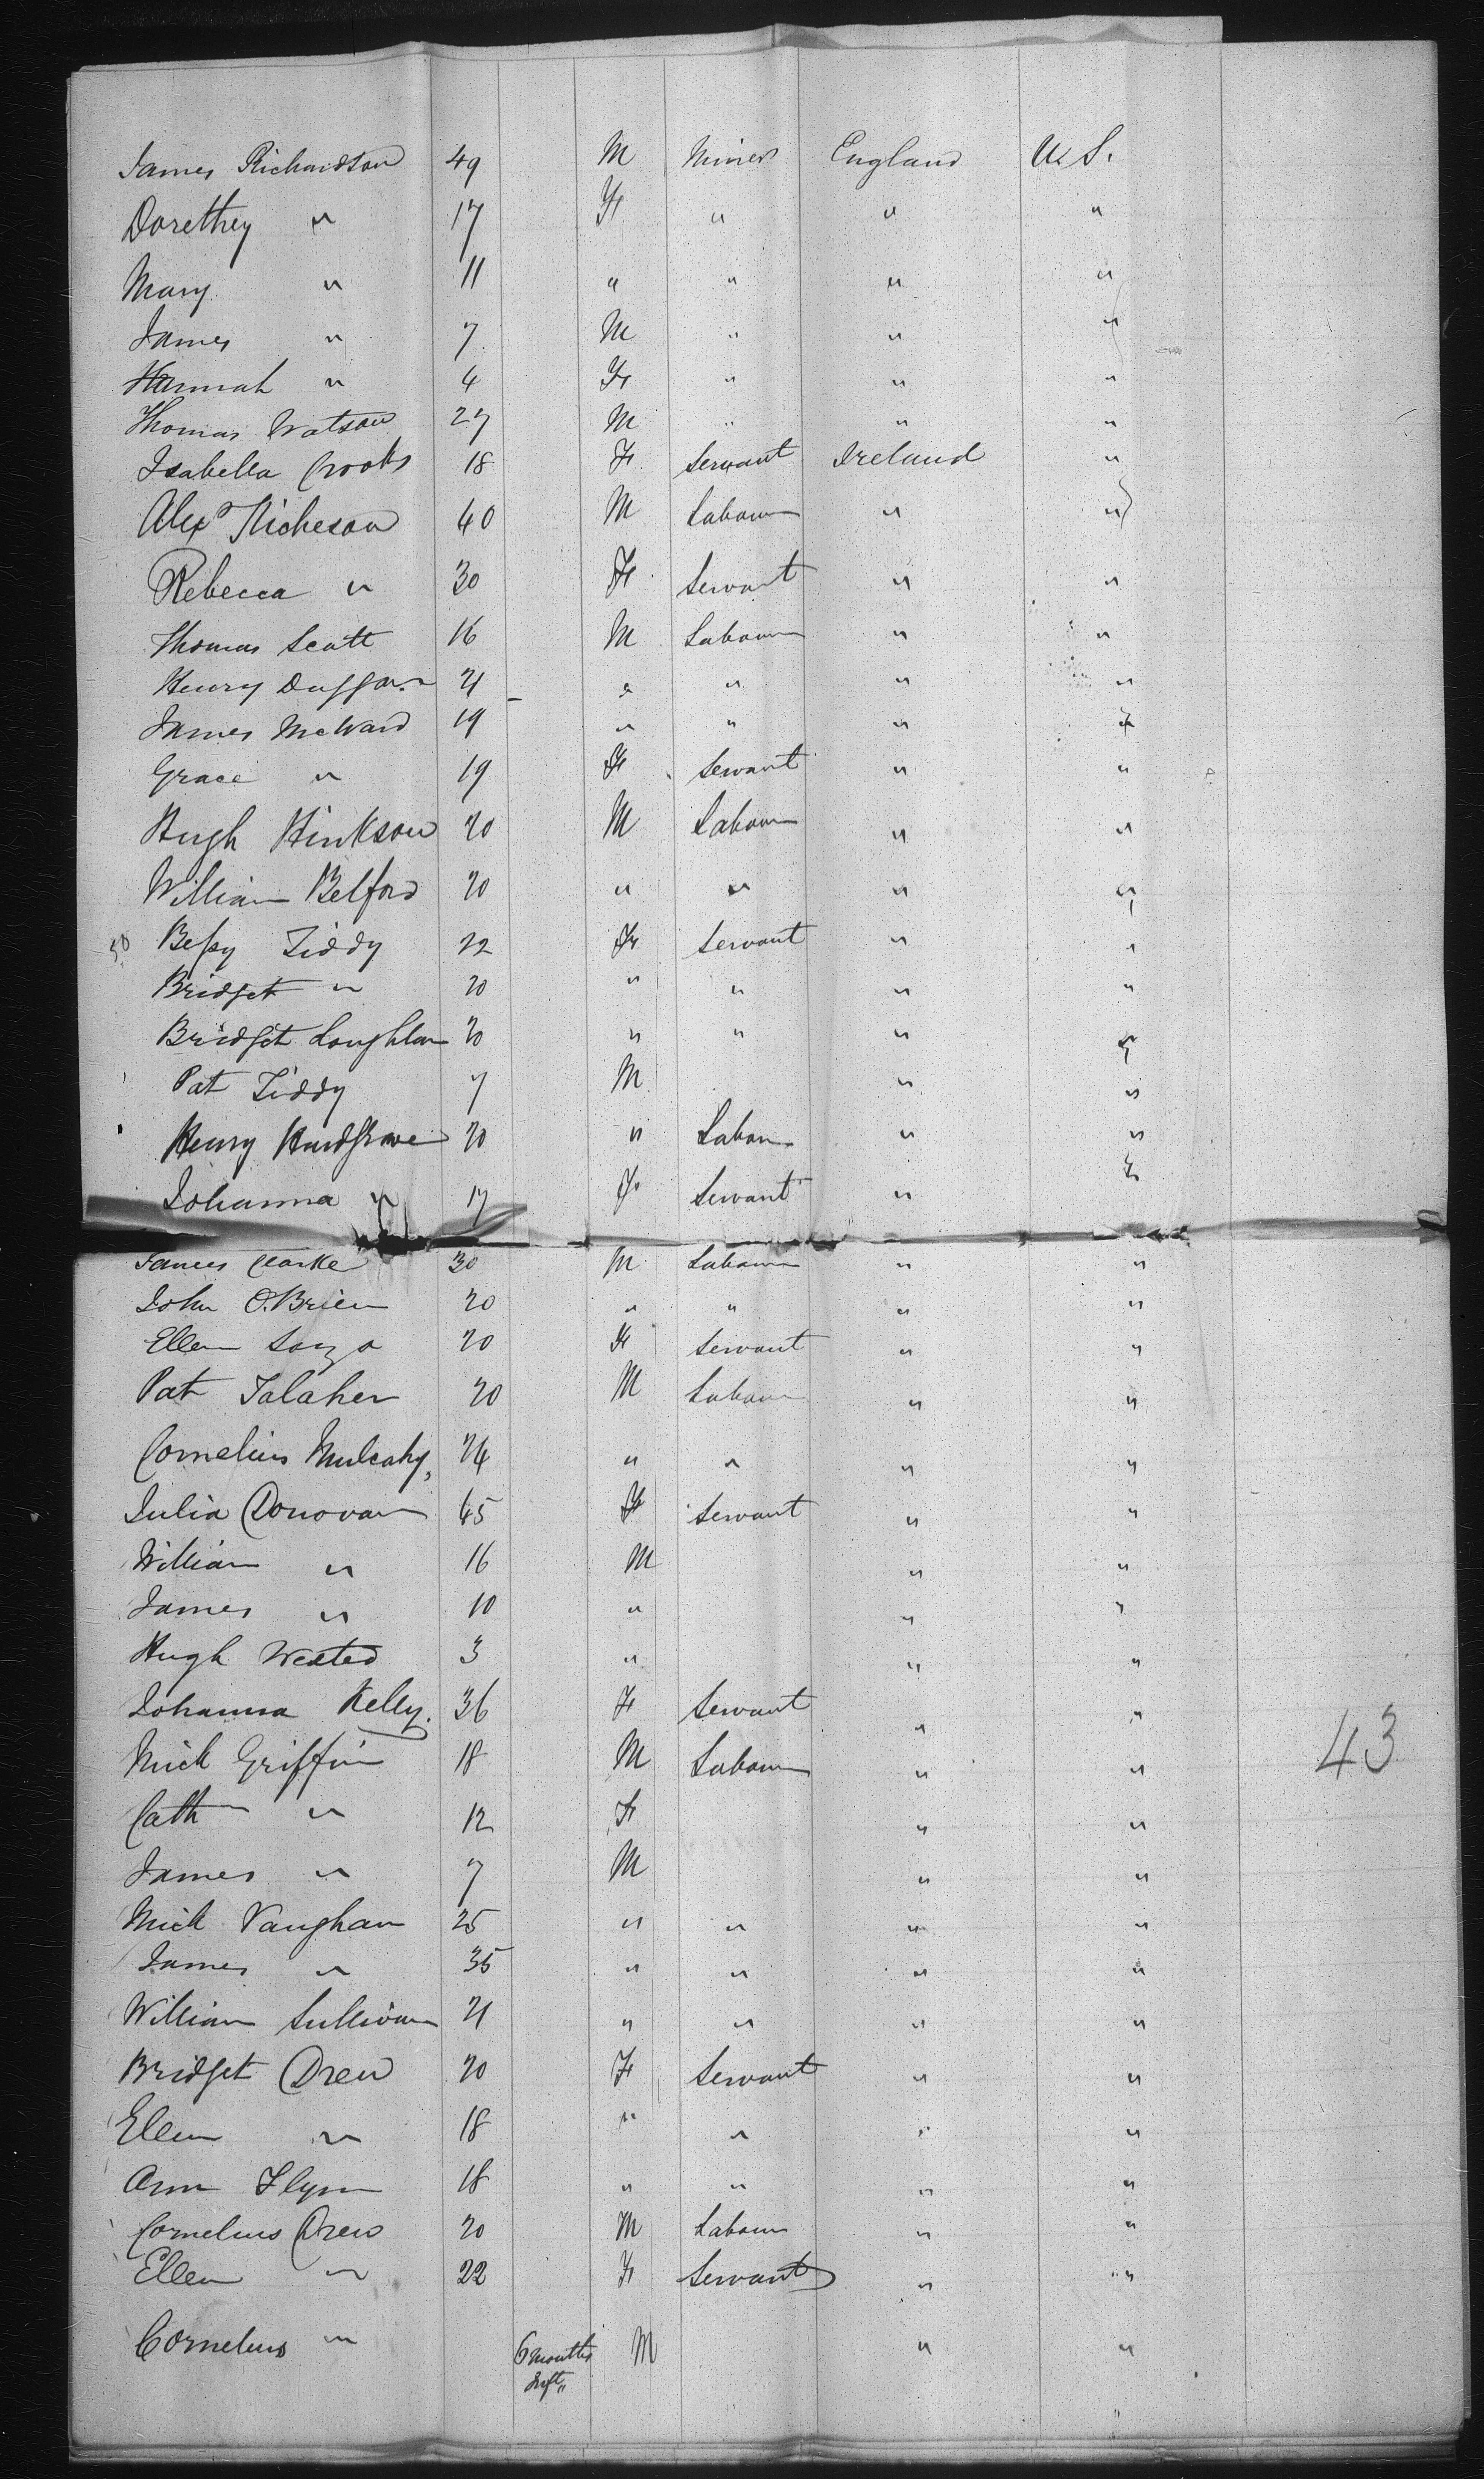 James Richardson 49 M Miner England U.S.
Dorethey " 17 F " " "
Mary " 11 " " " "
James " 7 M " " "
Hannah " 4 F " " "
Thomas Watson 27 M " " "
Isabella Crooks 18 F Servant Ireland "
Alex Richeson 40 M Labour " "
Rebecca " 30 F Servant " "
Thomas Scott 16 M Labour " "
Henry Duggan 21 " " " "
James McWard 19 " " " "
Grace " 19 F Servant " "
Hugh Hinkson 20 M Labour " "
William Belford 20 " " " "
50 Bessy Liddy 22 F Servant " "
Bridget " 20 " " " "
Bridget Loughlan 20 " " " "
Pat Liddy 7 M " "
Henry Hardgrave 20 " Labour " "
Johanna " 17 F Servant " "
James Clarke 30 M Labour " "
John O.Brien 20 " " " "
Ellen 20 F Servant " "
Pat Talaher 20 M Labour " "
Cornelius Mulcahy, 24 " " " "
Julia Donovan 45 F Servant " "
William " 16 M " "
James " 10 " " "
Hugh 3 " " "
Johanna Kelly. 36 F Servant " "
Mick Griffin 18 M Labour " " 43
Cath " 12 F " "
James " 7 M " "
Mick Vaughan 25 " " " "
James " 35 " " " "
William Sullivan 21 " " " "
Bridget Drew 20 F Servant " "
Ellen " 18 " " " "
Ann Flynn 18 " " " "
Cornelius Drew 20 M Labour " "
Ellen " 22 F Servant " "
Cornelius " 6 months M " "
Inft"